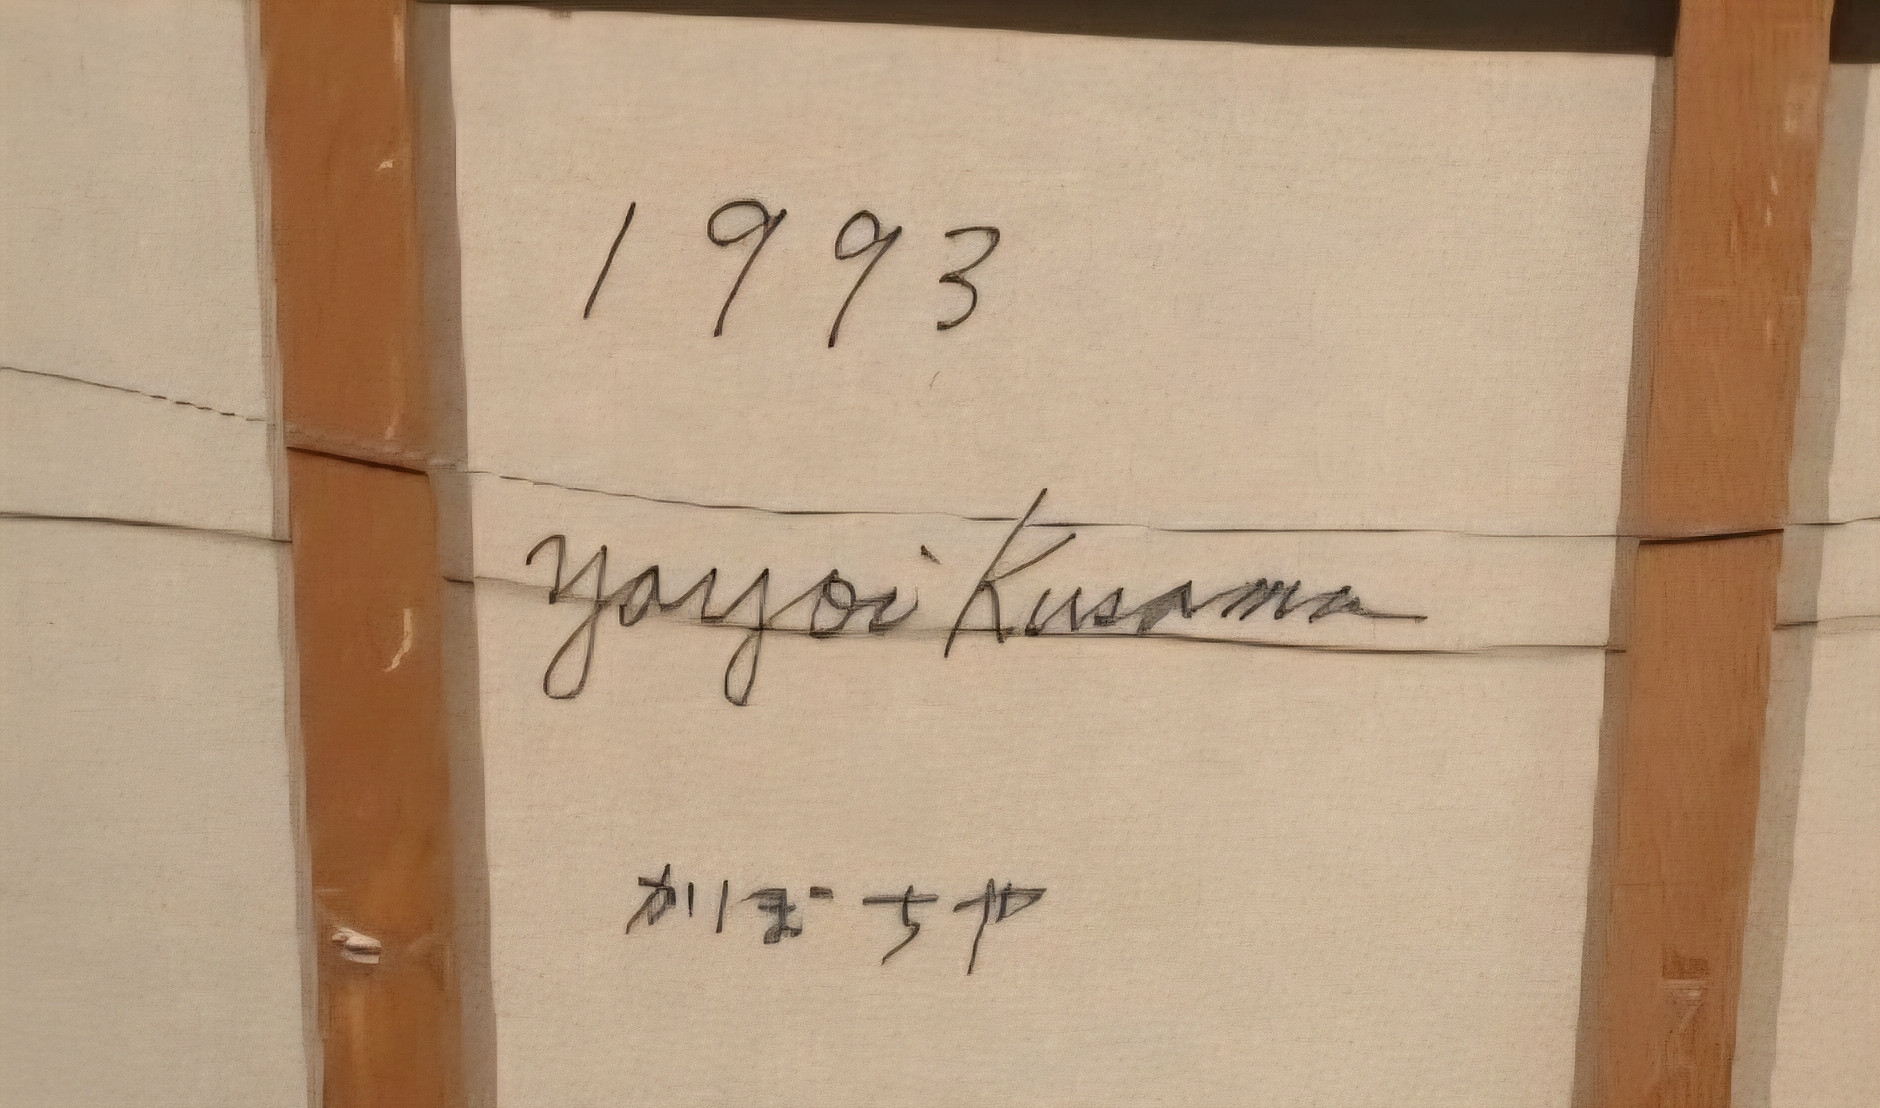 1993
Yayoi Kusama
かぼちゃ